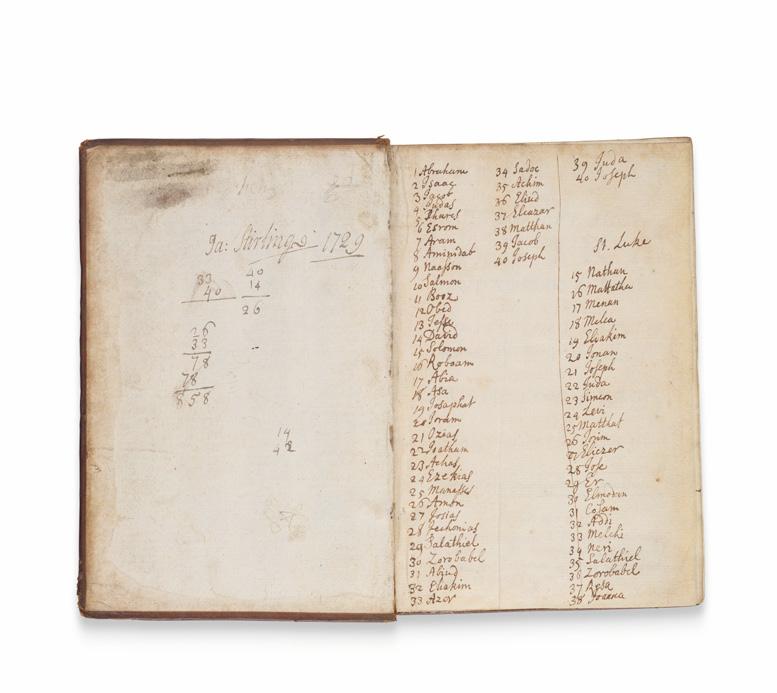 Ja: Stirling 1729
33
40
40
14
26
26
33
78
78
858
14
42
1 Abraham
2 Isaac
3 Jacob
4 Judas
5 Phares
6 Esrom
7 Aram
8 Amindab
9 Naasson
10 Salmon
11 Booz
12 Obed
13 Jesse
14 David
15 Solomon
16 Roboam
17 Abia
18 Asa
19 Josaphat
20 Joram
21 Ozias
22 Joatham
23 Achas
24 Ezekias
25 Manasses
26 Amon
27 Josias
28 Jechonias
29 Salathiel
30 Zorobabel
31 Abiud
32 Eliakim
33 Azor
34 Sadoc
35 Achim
36 Eliud
37 Eleazar
38 Matthan
39 Jacob
40 Joseph
39 Juda
40 Joseph
St. Luke
15 Nathan
16 Mattatha
17 Menan
18 Melea
19 Eliakim
20 Jonan
21 Joseph
22 Juda
23 Simeon
24 Levi
25 Matthat
26 Jorim
27 Eliezer
28 Jose
29 Er
30 Elmodam
31 Cosam
32 Addi
33 Melchi
34 Neri
35 Salathiel
36 Zorobabel
37 Resa
38 Joanna